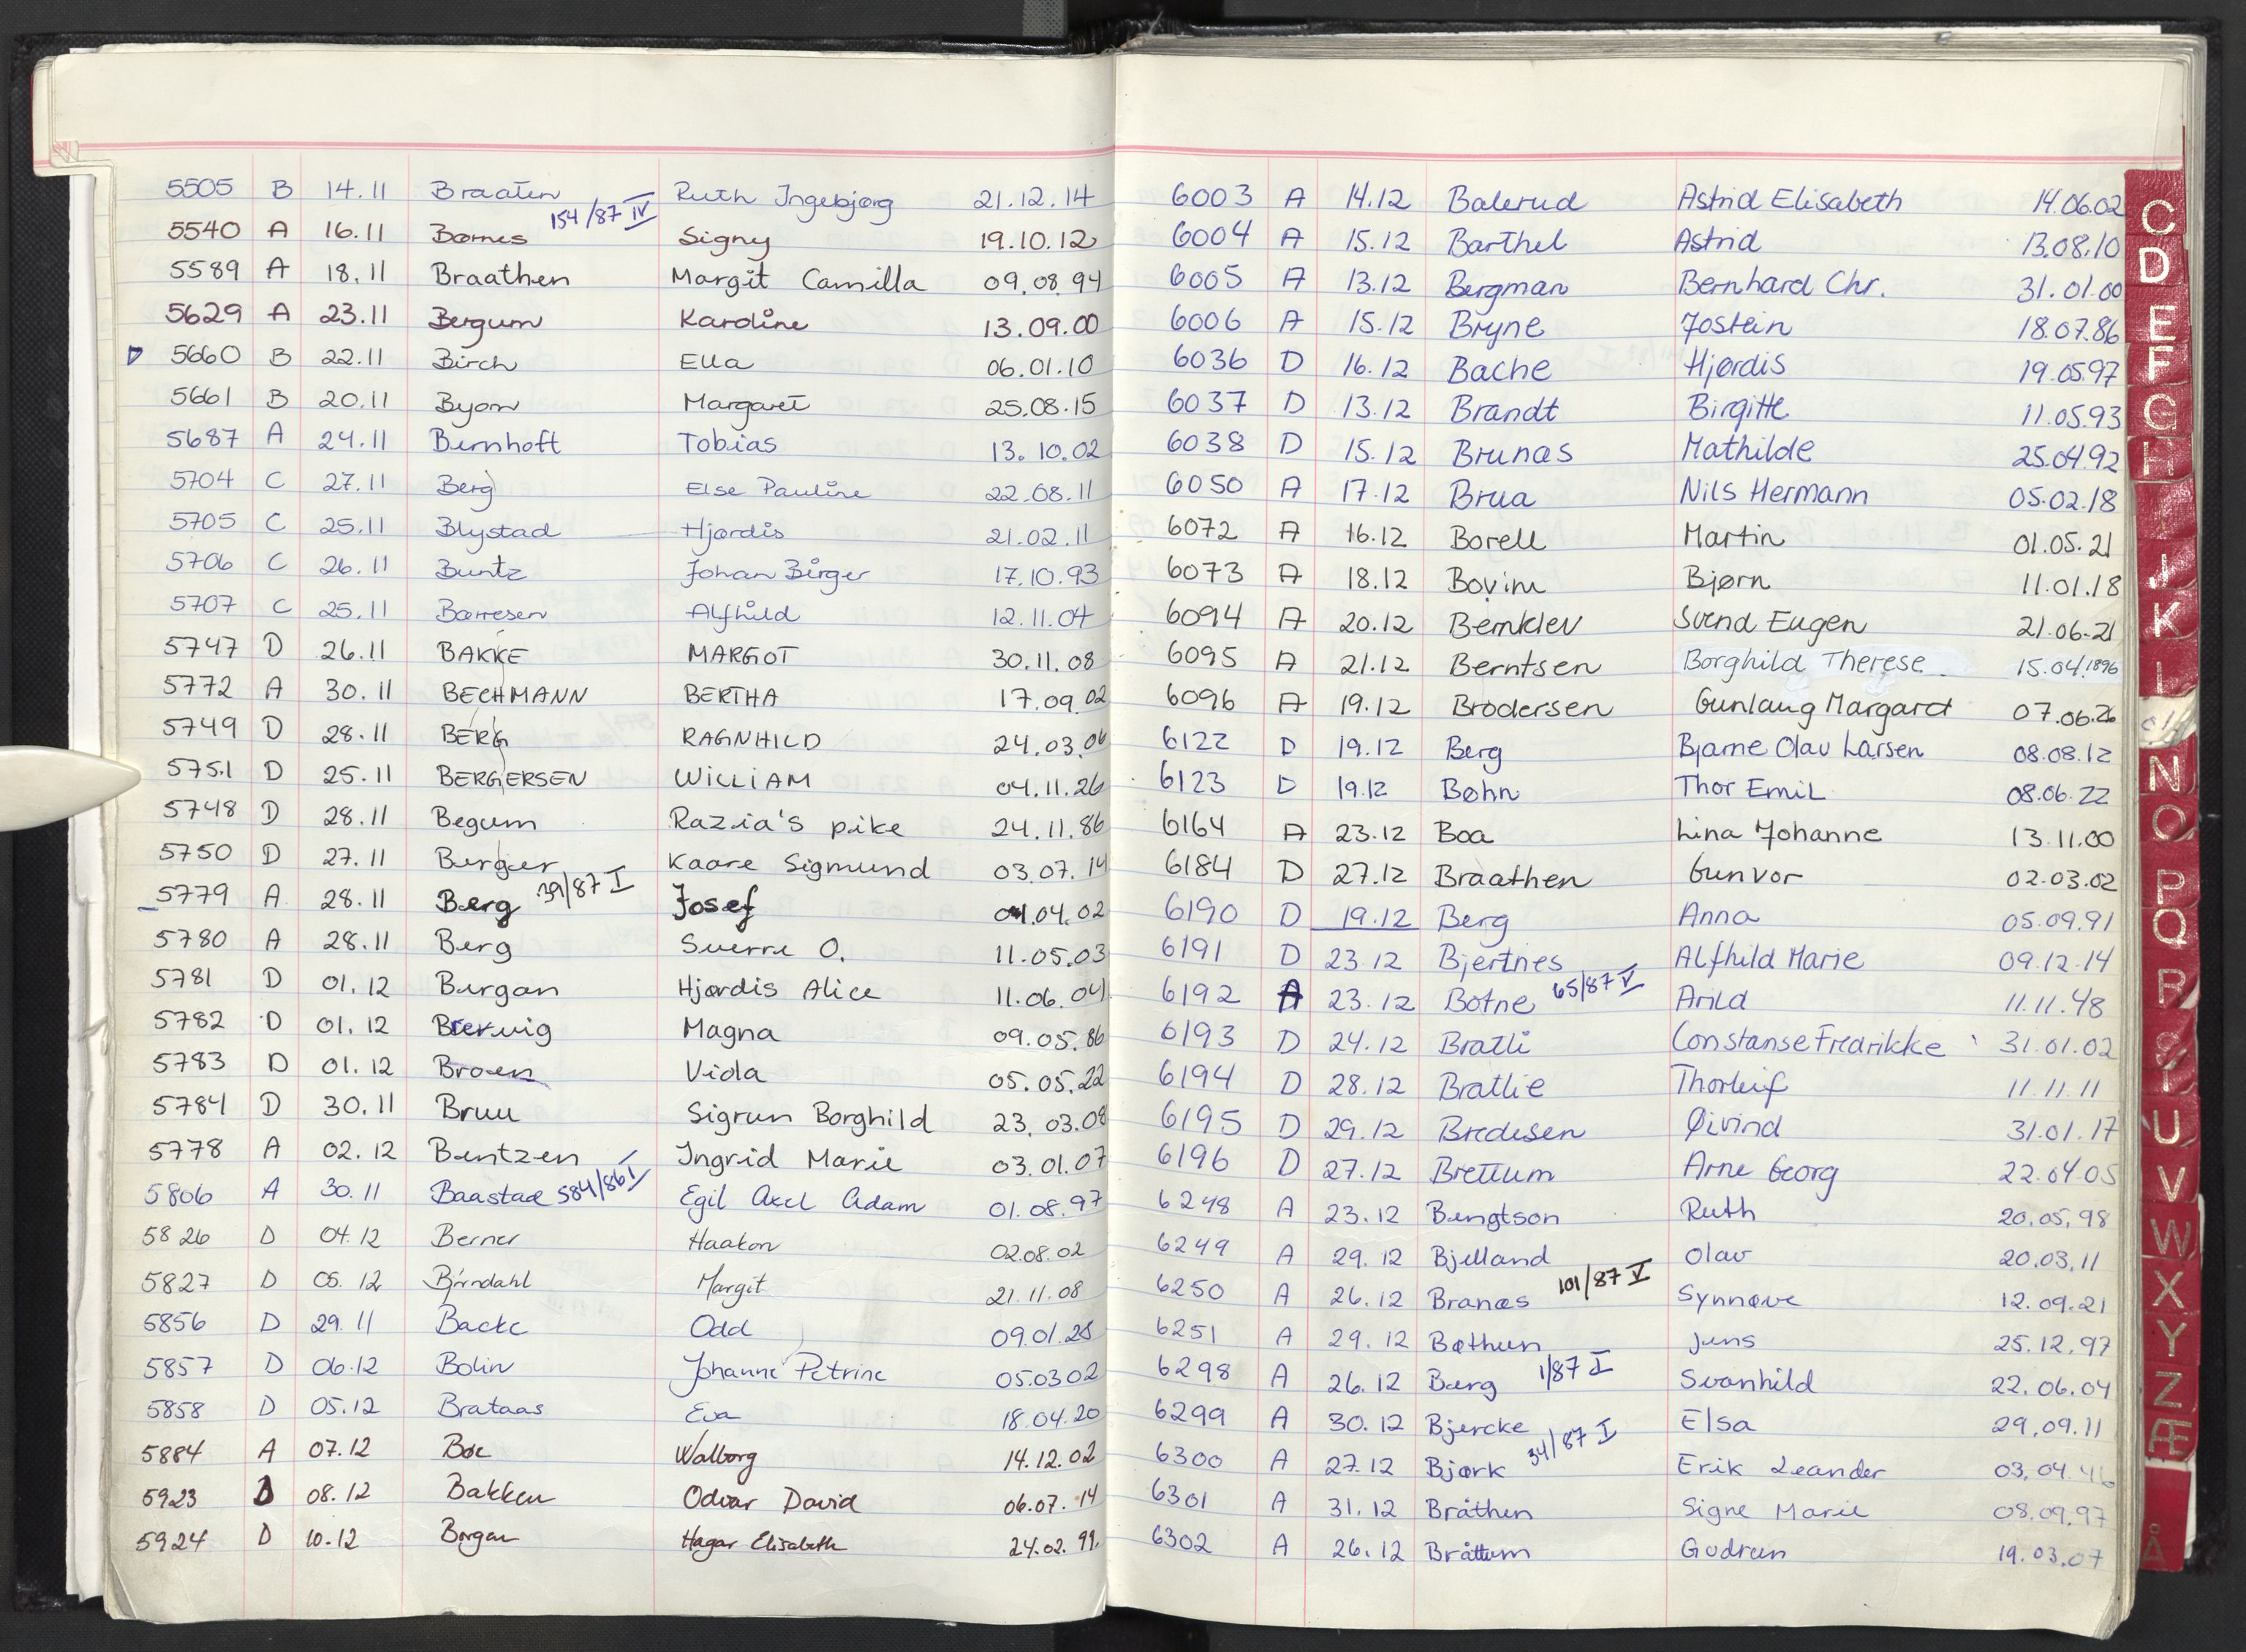 5505 B 14.11 Braaten Ruth Ingebjørg 21.12.14
5540 A 16.11 Børnes 154/87 IV Signy 19.10.12
5589 A 18.11 Braathen Margit Camilla 09.08.94
5629 A 23.11 Bergum Karoline 13.09.00
5660 B 22.11 Birch Ella 06.01.10
5661 B 20.11 Byom Margaret 25.08.15
5687 A 24.11 Bernhoft Tobias 13.10.02
5704 C 27.11 Berg Else Pauline 22.08.11
5705 C 25.11 Blystad Hjørdis 21.02.11
5706 C 26.11 Buntz Johan Birger 17.10.93
5707 C 25.11 Børresen Alfhild 12.11.04
5747 D 26.11 BAKKE MARGOT 30.11.08
5772 A 30.11 BECHMANN BERTHA 17.09.02
5749 D 28.11 BERG RAGNHILD 24.03.06
5751 D 25.11 BERGERSEN WILLIAM 04.11.26
5748 D 28.11 Begum Razia's pike 24.11.86
5750 D 27.11 Berger Kaare Sigmund 03.07.14
5779 A 28.11 Berg 39/87 I Josef 04.02
5780 A 28.11 Berg Sverre O. 11.05.03
5781 D 01.12 Bergan Hjørdis Alice 11.06.04
5782 D 01.12 Magna 09.05.86
5783 D 01.12 Broen Vida 05.05.22
5784 D 30.11 Bruu Sigrun Borghild 23.03.08
5778 A 02.12 Bentzen Ingrid Marie 03.01.07
5806 A 30.11 Baastad 584/86 I Egil Axel Adam 01.08.97
5826 D 04.12 Berner Haakon 02.08.02
5827 D 05.12 Bjørndahl Margit 21.11.08
5856 D 29.11 Backe Odd 09.01.25
5857 D 06.12 Bolin Johanne Petrine 05.03 02
5858 D 05.12 Brataas Eva 18.04.20
5884 A 07.12 Boe Walborg 14.12.02
5923 D 08.12 Bakken Odvar David 06.07.14
5924 D 10.12 Borgen Hagar Elisabeth 24.02.99.
6003 A 14.12 Balerud Astrid Elisabeth 14.06.02
6004 A 15.12 Barthel Astrid 13.08.10
6005 A 13.12 Bergman Bernhard Chr. 31.01.00
6006 A 15.12 Bryne Jostein 18.07.86
6036 D 16.12 Bache Hjørdis 19.05.97
6037 D 13.12 Brandt Birgitte 11.05.93
6038 D 15.12 Brunæs Mathilde 25.04.92
6050 A 17.12 Brua Nils Hermann 05.02.18
6072 A 16.12 Borell Martin 01.05.21
6073 A 18.12 Bovim Bjørn 11.01.18
6094 A 20.12 Bernklev Svend Eugen 21.06.21
6095 A 21.12 Berntsen Borghild Therese 15.04.1896
6096 A 19.12 Brodersen Gunlaug Margaret 07.06.26
6122 D 19.12 Berg Bjarne Olav Larsen 08.08.12
6123 D 19.12 Bøhn Thor Emil 08.06.22
6164 A 23.12 Boa Lina Johanne 13.11.00
6184 D 27.12 Braathen Gunvor 02.03.02
6190 D 19.12 Berg Anna 05.09.91
6191 D 23.12 Bjertnes Alfhild Marie 09.12.14
6192 A 23.12 Botne 65/87 V Arild 11.11.48
6193 D 24.12 Bratli Constanse Fredrikke 31.01.02
6194 D 28.12 Bratlie Thorleif 11.11.11
6195 D 29.12 Bredesen Øivind 31.01.17
6196 D 27.12 Brettum Arne Georg 22.04.05
6248 A 23.12 Bengtson Ruth 20.05.98
6249 A 29.12 Bjelland Olav 20.03.11
6250 A 26.12 Branæs 101/87 V Synnøve 12.09.21
6251 A 29.12 Bøthun Jens 25.12.97
6298 A 26.12 Berg 1/87 I Svanhild 22.06.04
6299 A 30.12 Bjercke Elsa 29.09.11
6300 A 27.12 Bjørk 34/87 I Erik Leander 03.04.46
6301 A 31.12 Bråthen Signe Marie 08.09.97
6302 A 26.12 Bråttum Gudrun 19.03.07
C
D
E
F
G
H
J
K
L
N
O
P
Q
R
S
T
U
V
W
X
Y
Z
Æ
Å